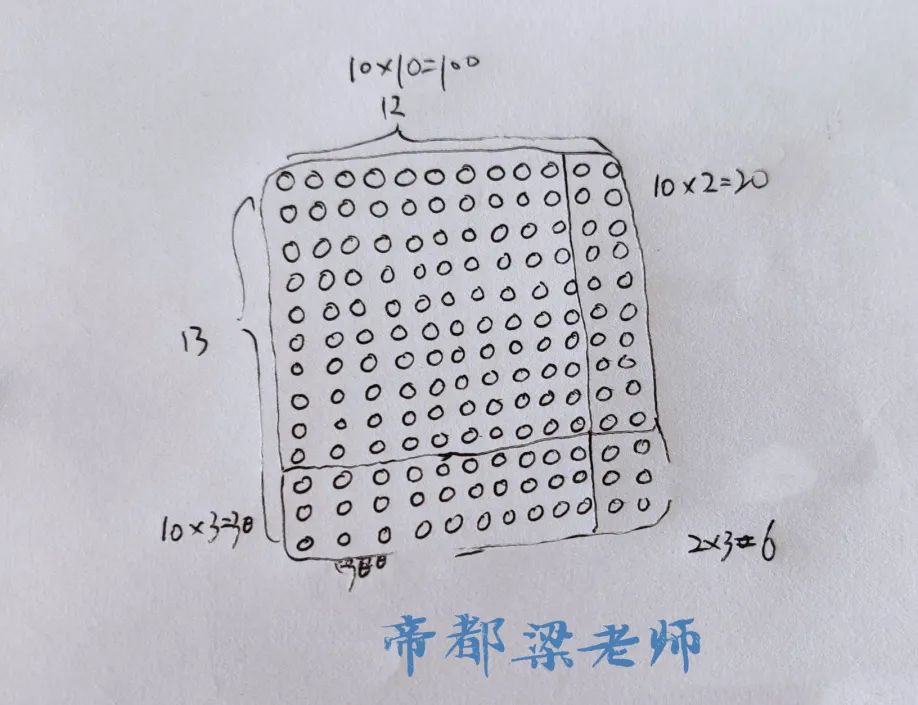 10×10=100
12
10×2=20
13
10×3=30
2×3=6
帝都梁老师